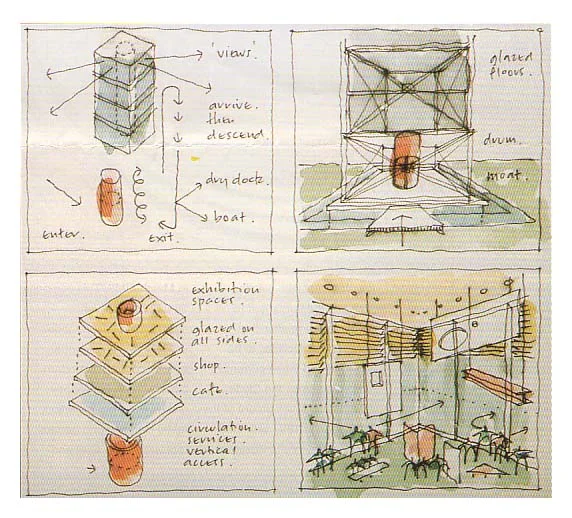 'views'.
arrive.
then
descend.
dry dock.
boat.
enter.
Exit.
glazed
floors.
drum.
moat.
exhibition
spaces.
glazed on
all sides.
shop.
cafe.
circulation.
services.
vertical
access.